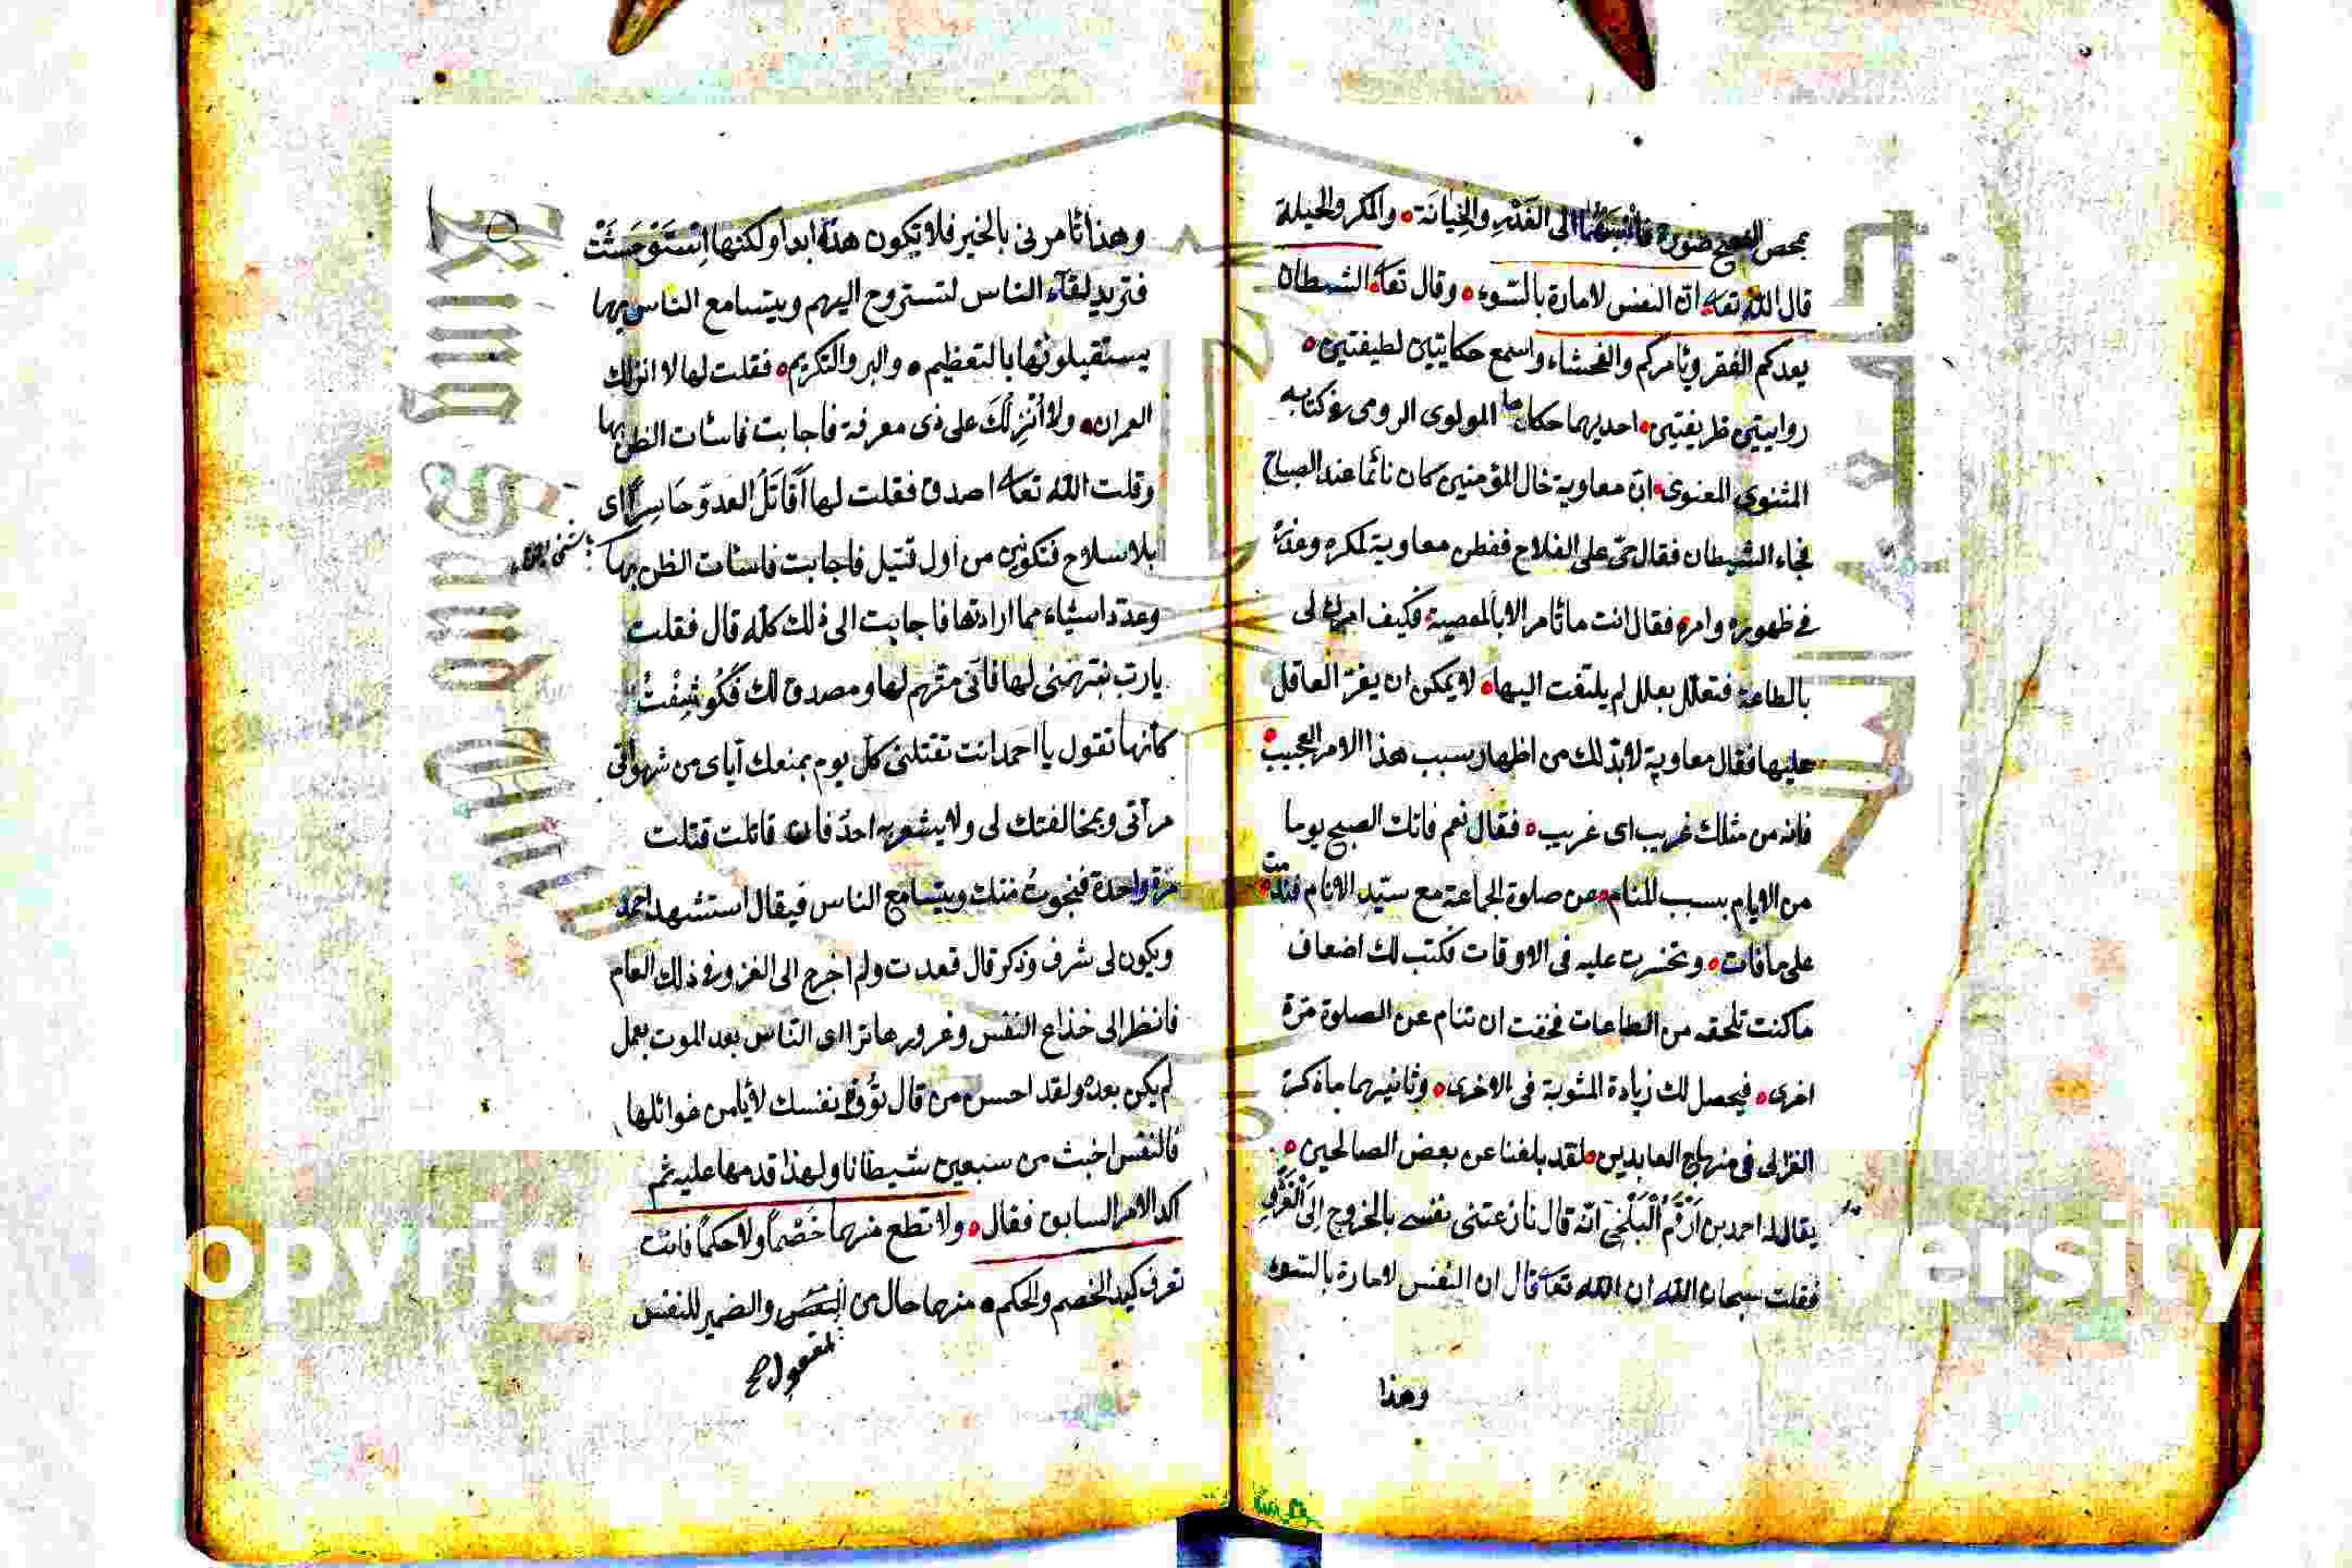 بمحص النصح صورة فانسبهما الى الغدر والخيانة والمكر والحيلة
قال الله تعا ان النفس لامارة بالسوء وقال تعا الشيطان
يعدكم الفقر ويأمركم والفحشاء واسمع حكايتين لطيفتين
روايتين ظريفتين احديهما حكاها المولوى الرومى فى كتابه
المثنوى المعنوى ان معاوية خال المؤمنين كان نائما عند الصباح
فجاء الشيطان فقال حى على الفلاح ففطن معاوية لمكره وغدره
فى ظهوره وامره فقال انت ما تأمر الا بالمعصية فكيف امرك لى
بالطاعة فتعلل بعلل لم يلتفت اليها لا يمكن ان يغر العاقل
عليها فقال معاوية لا بد لك من اظهار سبب هذا الامر العجيب
فانه من مثلك غريب اى غريب فقال نعم فاتك الصبح يوما
من الايام بسبب المنام عن صلوة الجماعة مع سيد الانام فندمت
على ما فات وتحسرت عليه فى الاوقات فكتب لك اضعاف
ما كنت تلحقه من الطاعات فخفت ان تنام عن الصلوة مرة
اخرى فيحصل لك زيادة المثوبة فى الاخرى وثانيهما ما ذكره
الغزالى فى منهاج العابدين لقد بلغنا عن بعض الصالحين
يقال له احمد بن ارقم البلخى انه قال نازعتنى نفسى بالخروج الى الغزو
فقلت سبحان الله ان الله تعا قال ان النفس لامارة بالسوء
وهذا
وهذا تأمرنى بالخير فلا تكون هذه ابدا ولكنها استوحشت
فتريد لقاء الناس لتستروح اليهم ويتسامع الناس بها
يستقبلونها بالتعظيم والبر والتكريم فقلت لها لا انزلك
العمران ولا انزلك على ذى معرفة فاجابت فاسأت الظن بها
وقلت الله تعا اصدق فقلت لها أقاتل العدو حاسرا اى
بلا سلاح فتكونين من اول قتيل فاجابت فاسأت الظن بها
وعدد اشياء مما ارادتها فاجابت الى ذلك كله قال فقلت
يا رب نبهنى لها فانى متهم لها ومصدق لك فكوشفت
كانها تقول يا احمد انت تقتلنى كل يوم بمنعك اياى من شهواتى
مرات وبمخالفتك لى ولا يشعر به احد فان قاتلت قتلت
مرة واحدة فنجوت منك ويتسامع الناس فيقال استشهد احمد
ويكون لى شرف وذكر قال قعدت ولم اخرج الى الغزو فى ذلك العام
فانظر الى خداع النفس وغرورها تراءى الناس بعد الموت بعمل
لم يكن بعده ولقد احسن من قال توق نفسك لا تأمن غوائلها
فالنفس اخبث من سبعين شيطانا ولهذا قدمها عليه ثم
اكد الامر السابق فقال ولا تطع منهما خصما ولا حكما فانت
تعرف كيد الخصم والحكم منهما حال من البعض والضمير للنفس